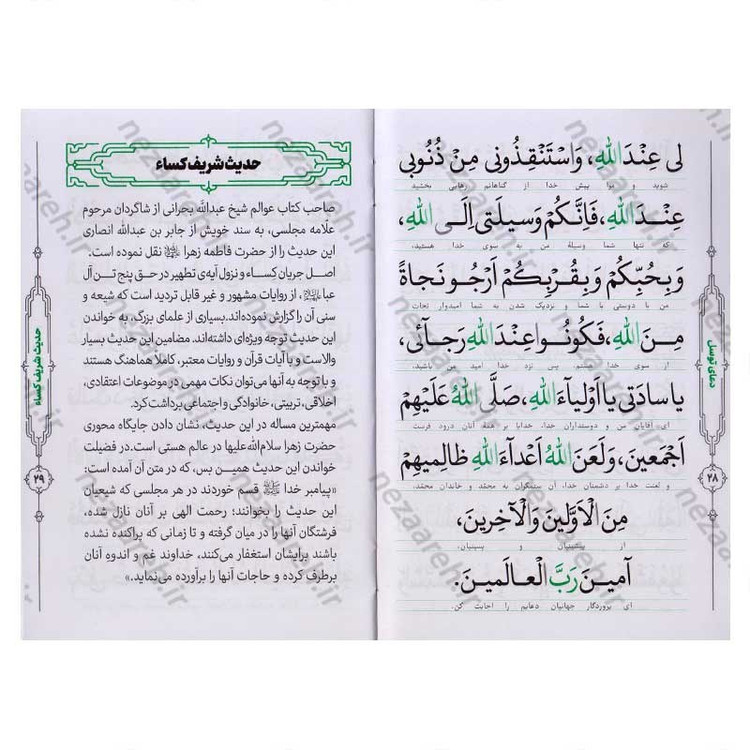 لی عِنْدَ اللهِ، وَاسْتَنْقِذُونی مِنْ ذُنُوبی
شوید و مرا پیش خدا از گناهانم رهایی بخشید
عِنْدَ اللهِ، فَاِنَّکُمْ وَسیلَتی اِلَی اللهِ،
که تنها شما وسیلهٔ من به سوی خدا هستید،
وَبِحُبِّکُمْ وَبِقُرْبِکُمْ اَرْجُو نَجاةً
من با دوستی با شما و نزدیک شدن به شما امیدوار نجات
مِنَ اللهِ، فَکُونُوا عِنْدَ اللهِ رَجآئی،
از سوی خدا هستم، پس نزد خدا امید من باشید،
یا سادَتی یا اَوْلِیآءَ اللهِ، صَلَّی اللهُ عَلَیْهِمْ
ای آقایان من و دوستداران خدا، خدایا بر همه آنان درود فرست
اَجْمَعینَ، وَلَعَنَ اللهُ اَعْدآءَ اللهِ ظالِمیهِمْ
و لعنت خدا بر دشمنان خدا، آن ستمگران به محمّد و خاندان محمّد،
مِنَ الْاَوَّلینَ وَالْآخِرینَ،
از پیشینیان و پسینیان،
آمینَ رَبَّ الْعالَمینَ.
ای پروردگار جهانیان دعایم را اجابت کن.
دعای توسل
۲۸
حدیث شریف کساء
صاحب کتاب عوالم شیخ عبدالله بحرانی از شاگردان مرحوم
علّامه مجلسی، به سند خویش از جابر بن عبدالله انصاری
این حدیث را از حضرت فاطمه زهرا نقل نموده است.
اصل جریان کِساء و نزول آیه‌ی تطهیر در حق پنج تن آل
عبا، از روایات مشهور و غیر قابل تردید است که شیعه و
سنی آن را گزارش نموده‌اند. بسیاری از علمای بزرگ، به خواندن
این حدیث توجه ویژه‌ای داشته‌اند. مضامین این حدیث بسیار
والاست و با آیات قرآن و روایات معتبر، کاملاً هماهنگ هستند
و با توجه به آنها می‌توان نکات مهمی در موضوعات اعتقادی،
اخلاقی، تربیتی، خانوادگی و اجتماعی برداشت کرد.
مهمترین مساله در این حدیث، نشان دادن جایگاه محوری
حضرت زهرا سلام‌الله‌علیها در عالم هستی است. در فضیلت
خواندن این حدیث همین بس، که در متن آن آمده است:
«پیامبر خدا قسم خوردند در هر مجلسی که شیعیان
این حدیث را بخوانند؛ رحمت الهی بر آنان نازل شده،
فرشتگان آنها را در میان گرفته و تا زمانی که پراکنده نشده
باشند برایشان استغفار می‌کنند، خداوند غم و اندوهِ آنان
برطرف کرده و حاجات آنها را برآورده می‌نماید.»
حدیث شریف کساء
۲۹
nezaareh.ir
nezaareh.ir
nezaareh.ir
nezaareh.ir
nezaareh.ir
nezaareh.ir